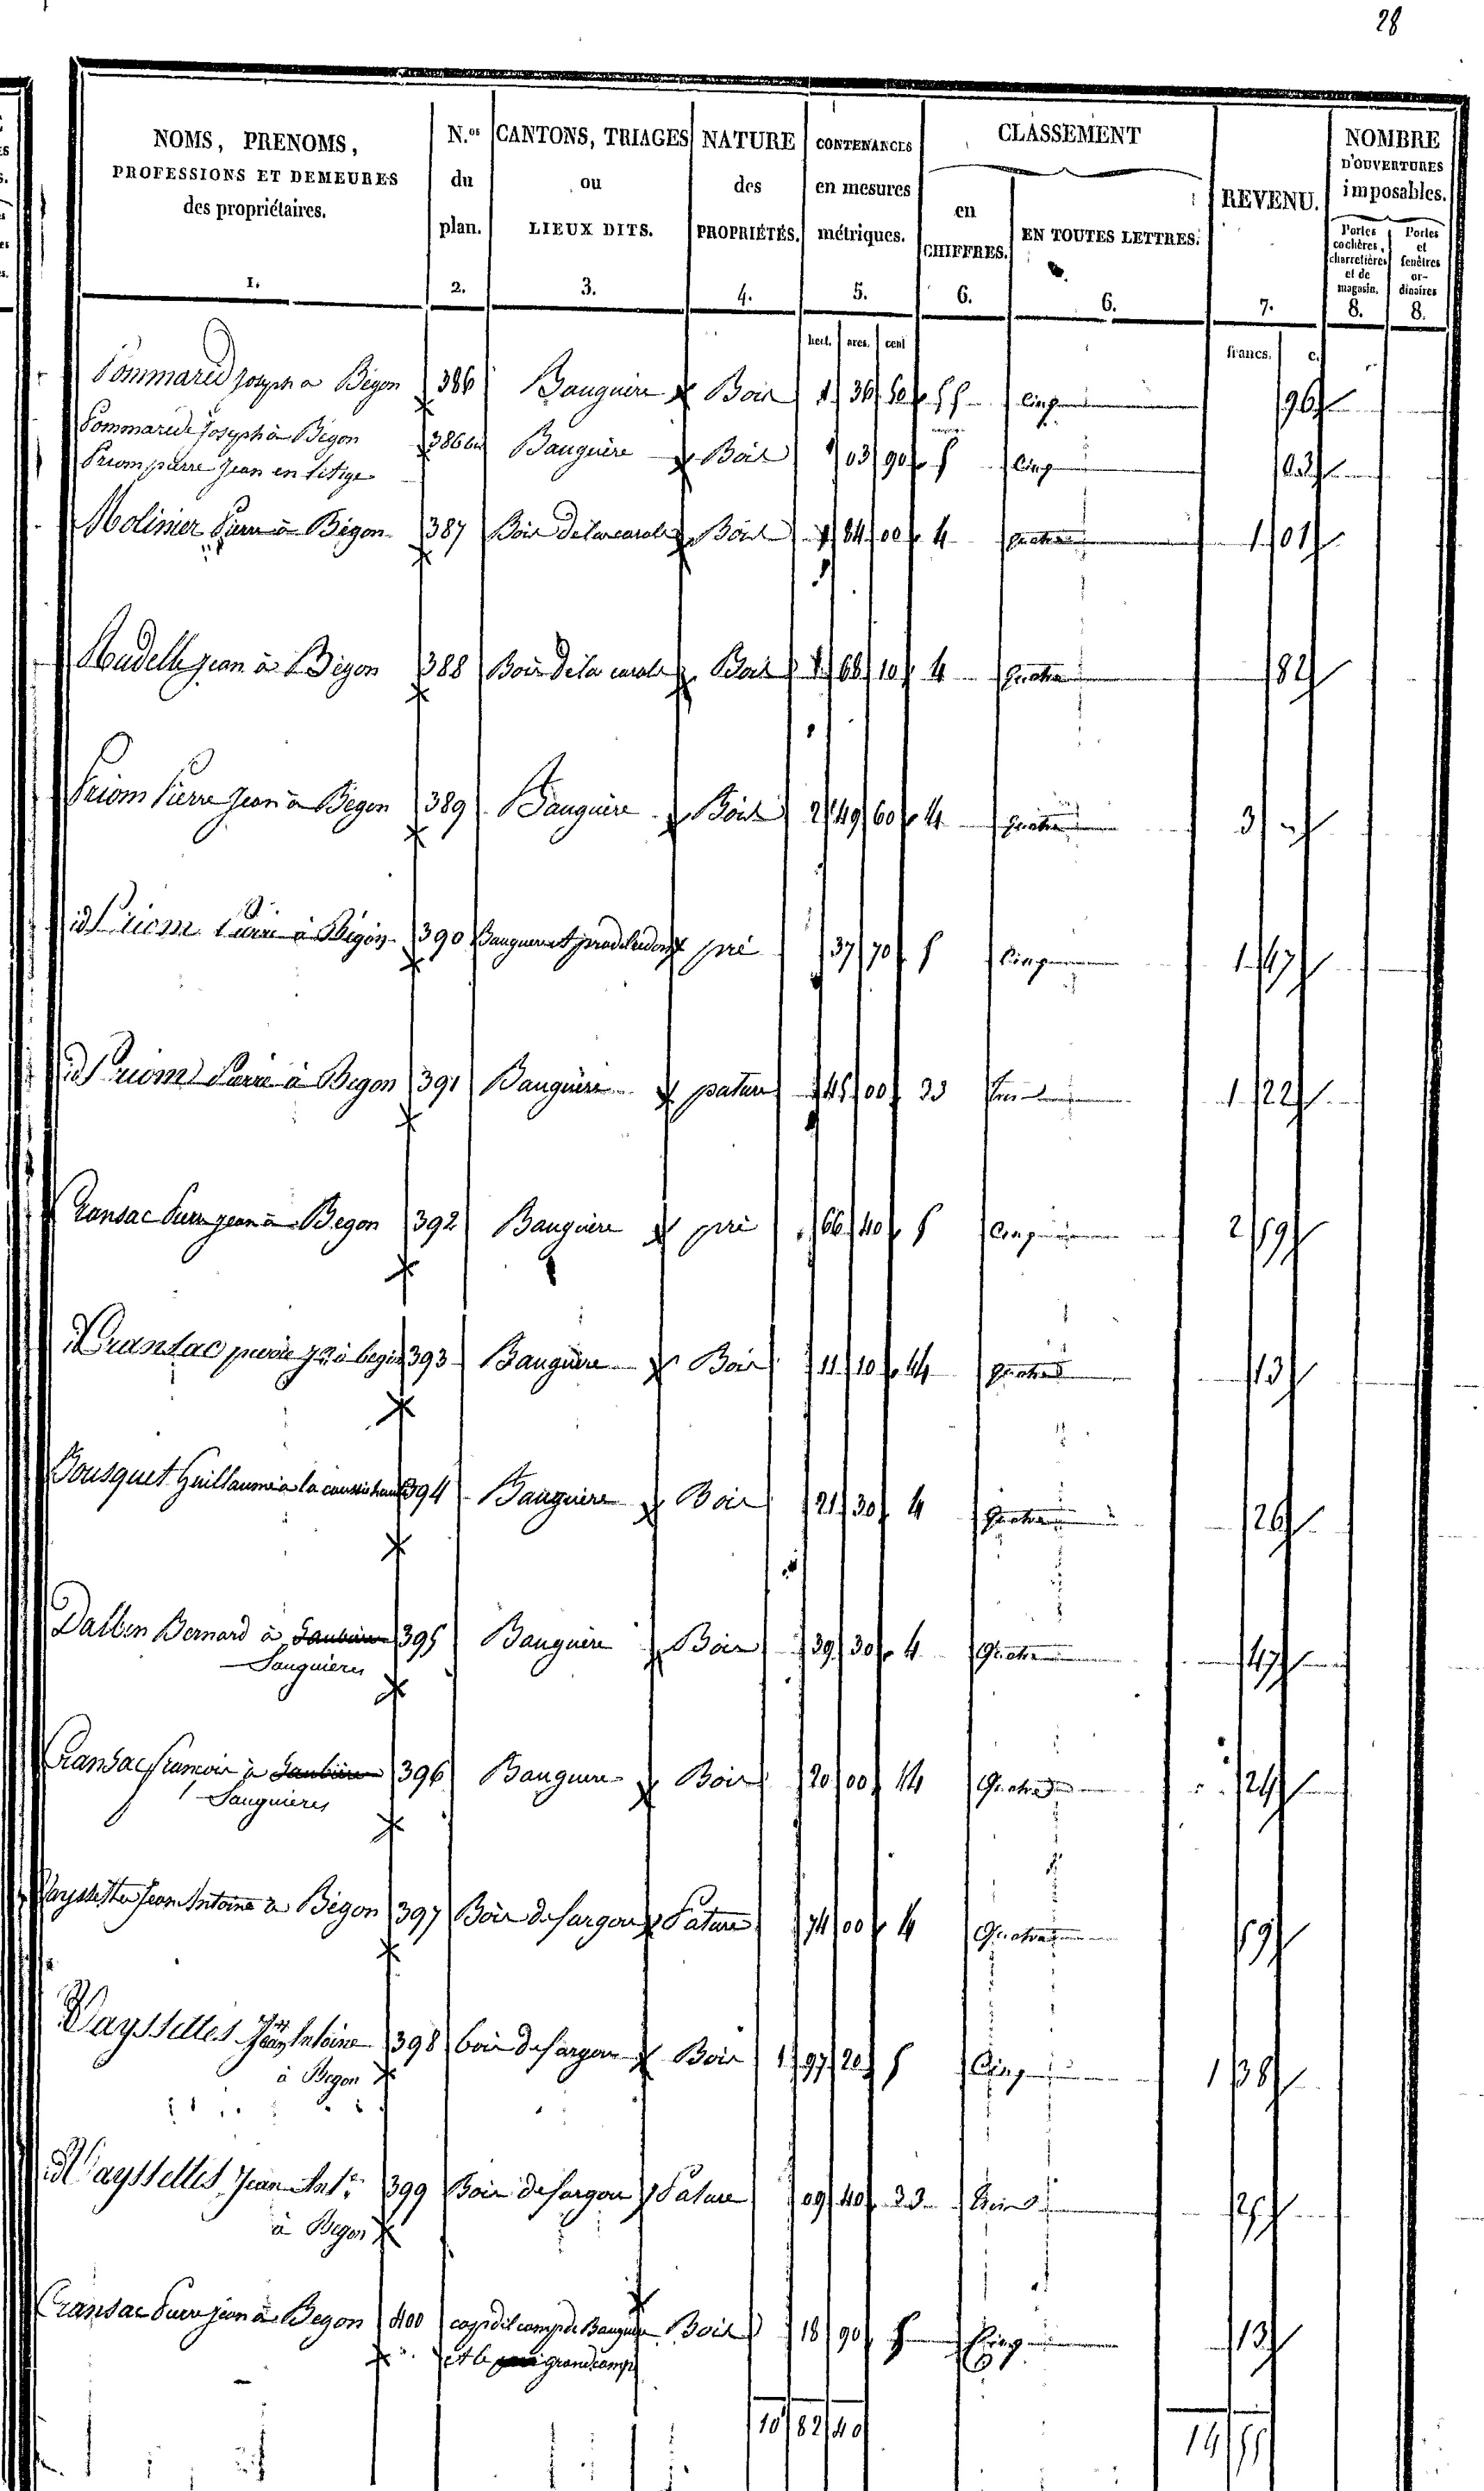 28
NOMS, PRENOMS, PROFESSIONS ET DEMEURES des propriétaires. 1.
N.os du plan. 2.
CANTONS, TRIAGES ou LIEUX DITS. 3.
NATURE des PROPRIÉTÉS. 4.
CONTENANCES en mesures métriques. 5.
CLASSEMENT
en CHIFFRES. 6.
EN TOUTES LETTRES. 6.
REVENU. 7.
NOMBRE D'OUVERTURES imposables.
Portes cochères, charretières et de magasin. 8.
Portes et fenêtres ordinaires 8.
hect. ares. cent francs. c.
Joseph a Begon 386 Bauguiere Bois 36 50 5 Cinq 96
Joseph à Bégon 386 bis Bauguière Bois 03 90 5 Cinq 03
Priom pierre Jean en litige
Molinier Pierre à Bégon 387 Bois de la Bois 84 00 4 quatre 1 01
Jean à Bégon 388 Bois de la Bois 68 10 4 quatre 82
Priom Pierre Jean à Begon 389 Bauguière Bois 2 49 60 4 quatre 3 "
id Priom Pierre à Bégon 390 pré 37 70 5 Cinq 1 47
id Priom Pierre à Begon 391 Bauguière pature 45 00 3 1 22
Cransac Pierre jean à Begon 392 Bauguière pré 66 40 5 Cinq 2 59
id Cransac pierre jn à begon 393 Bauguiere Bois 11 10 4 quatre 13
Bousquet Guillaume a la 394 Bauguiere Bois 21 30 4 quatre 26
Dalben Bernard à 395 Bauguiere Bois 39 30 4 Quatre 47
Sauguieres
Cransac francois à 396 Bauguiere Bois 20 00 4 Quatre 24
Sauguieres
Jean Antoine à Bégon 397 Bois de Pature 74 00 4 Quatre 59
Vayssettes Jean Antoine 398 bois de Bois 1 97 20 5 Cinq 1 38
à Begon
id Vayssettes Jean Ant.e 399 Bois de Pature 09 40 3 25
à Begon
Cransac Pierre jean à Begon 400 camp de Bauguiere Bois 18 90 5 Cinq 13
et le grand camp
10 82 40 14 55